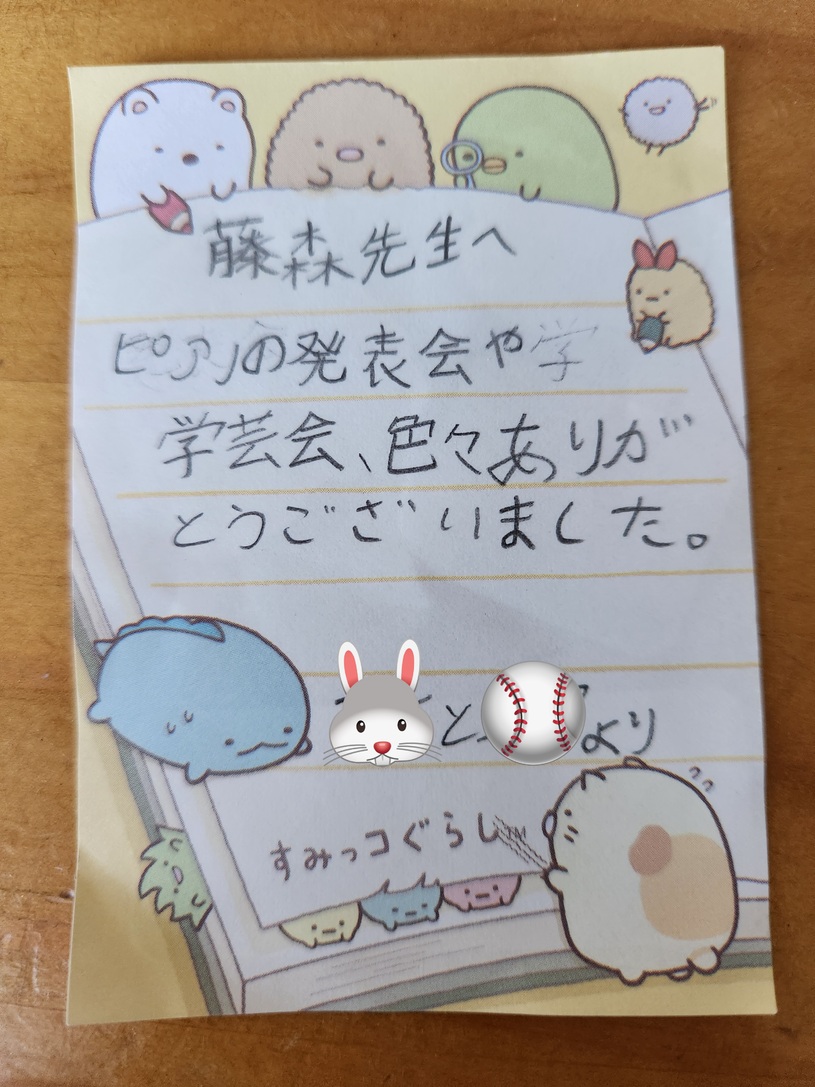 藤森先生へ
ピアノの発表会や学
学芸会、色々ありが
とうございました。
と より
すみっコぐらし